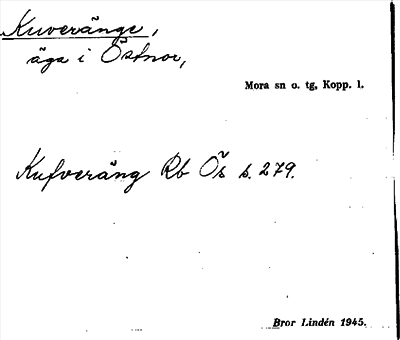 Kuveränge,
äga i Östnor,
Mora sn o. tg, Kopp. l.
Kufveräng Rb Ös s. 279.
Bror Lindén 1945.